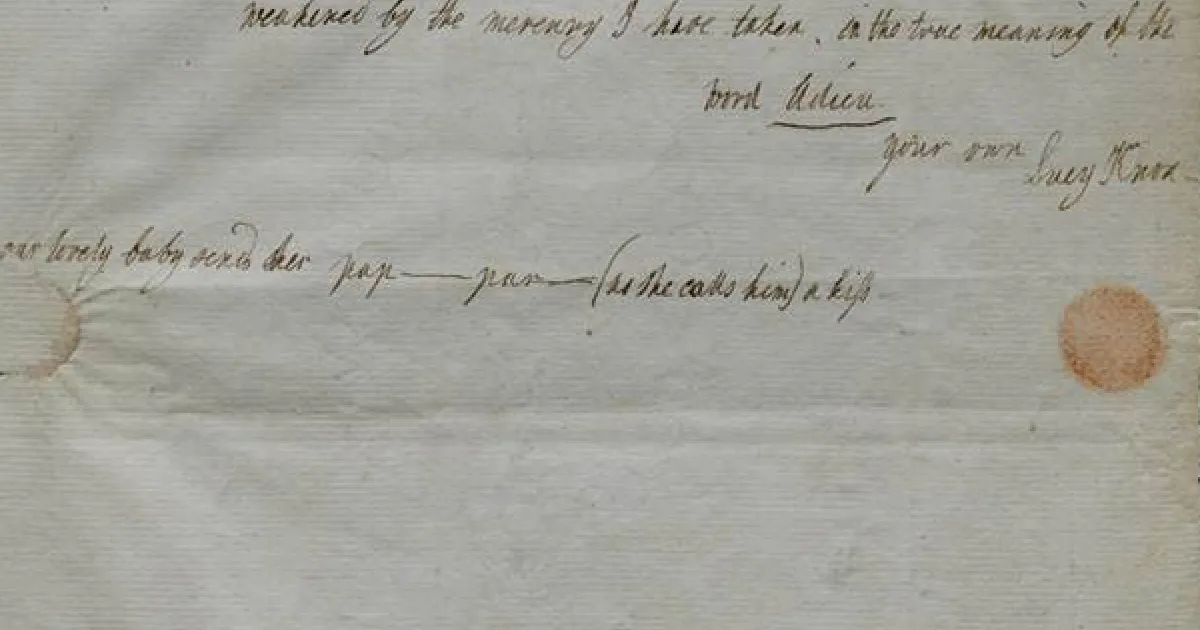 weakened by the mercury I have taken. in the true meaning of the
word Adieu
your own Lucy Knox
our lovely baby sends her pap—par—(as she calls him) a kiss